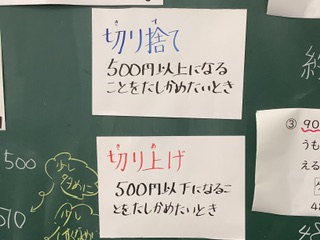 切り捨て
500円以上になる
ことをたしかめたいとき
切り上げ
500円以下になるこ
とをたしかめたいとき
500
少し
多めに
510
少し
③ 90
うも
える